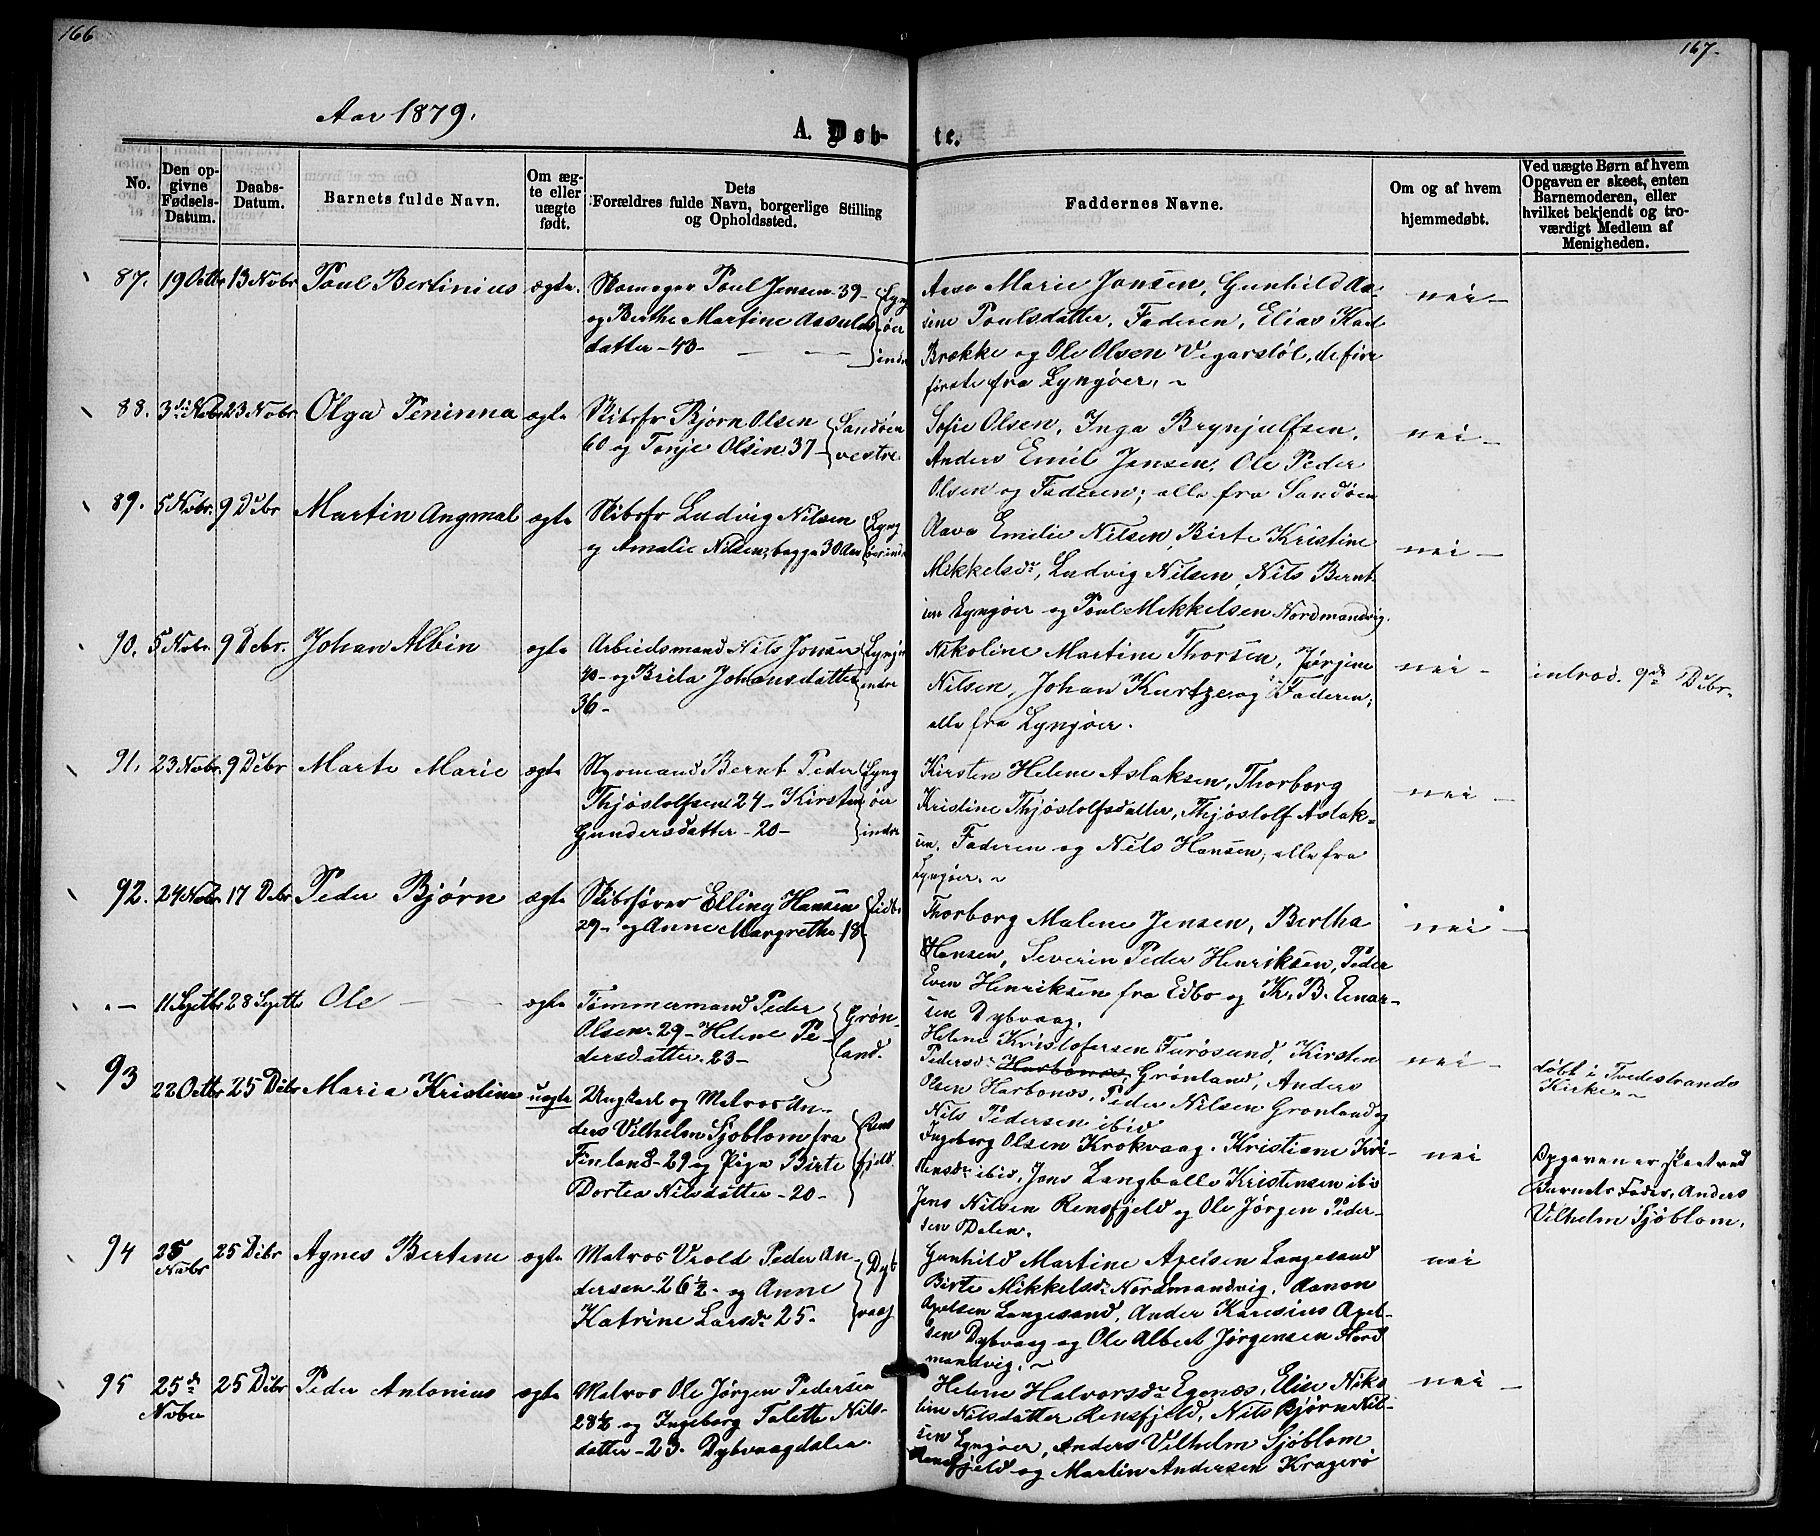 166
167.
Aar 1879.
A. Døb-
te.
No.
Den op-
givne
Fødsels-
Datum.
Daabs-
Datum.
Barnets fulde Navn.
Om æg-
te eller
uægte
født.
Dets
Forældres fulde Navn, borgerlige Stilling
og Opholdssted.
Faddernes Navne.
Om og af hvem
hjemmedøbt.
Ved uægte Børn af hvem
Opgaven er skeet, enten
Barnemoderen, eller
hvilket bekjendt og tro-
værdigt Medlem af
Menigheden.
87. 19 Octbr 13 Nobr Poul Bertinius ægte.
Skomager Poul Jensen 39 -
og Berthe Martine Aasulds
datter - 43 -
Lyng
øer
indre
Aasa Marie Jonsen, Gunhild Aa-
sine Poulsdatter, Faderen, Elias
Brække og Ole Olsen Vegarstøl, de fire
første fra Lyngøer. ~
nei -
88. 3die Nobr 23 Nobr Olga Peninna ægte
Skibsfr Bjørn Olsen
60 og Tonje Olsen 37 -
Sandøen
vestre
Sofie Olsen, Inga Brynjulfsen,
Anders Emil Jensen, Ole Peder
Olsen og Faderen; alle fra Sandøen
nei -
89. 5 Nobr. 9 Debr Martin Angmal ægte
Skibsfr Ludvig Nilsen
og Amalie Nilsen; begge 30 Aar
Lyng
øer indre
Aava Emilie Nilsen, Birte Kristine
Mikkelsdr, Ludvig Nilsen, Nils Bernt
sen Lyngøer og Poul Mikkelsen Nordmandvig.
nei -
90. 5 Nobr. 9 Debr. Johan Albin ægte
Arbeidsmand Nils Jonsen
40 - og Brita Johansdatter
36 -
Lyngør
indre
Nikoline Martine Thorsen, Jørgine
Nilsen, Johan Kurtze og Faderen;
alle fra Lyngøer.
nei -
introd. 9de Debr.
91. 23 Nobr. 9 Debr Marte Marie ægte
Styrmand Bernt Peder
Thjøstolfsen 24 - Kirsten
Gundersdatter - 20 -
Lyng
øer
indre
Kirsten Helene Aslaksen, Thorborg
Kristine Thjøstolfsdatter, Thjøstolf Aslak-
sen, Faderen og Nils Hansen; alle fra
Lyngøer. ~
nei -
92. 24 Nobr 17 Debr Peder Bjørn ægte
Skibsfører Elling Hansen
29 - og Anne Margrethe 18
Eidbo
Thorborg Malene Jensen, Bertha
Hansen, Severin Peder Henriksen, Peder
Even Henriksen fra Eidbo og K. B. Einar-
sen Dybvaag.
nei -
- 11 Septbr 28 Septbr Ole - - ægte
Tømmermand Peder
Olsen 29 - Helene Pe-
dersdatter 23 -
Grøn-
land.
Helene Kristofersen Furøsund, Kirsten
Pedersdr Harbonæs, Grønland, Anders
Olsen Harbonæs, Peder Nilsen Grønland og
Nils Pedersen ibid
nei -
døbt i Tvedestrands
Kirke. ~
93 22 Octbr 25 Debr Maria Kristine uægte
Ungkarl og Matros An-
ders Vilhelm Sjøblom fra
Finland - 29 og Pige Birte
Dortea Nilsdatter - 20 -
Rens
fjeld
Ingeborg Olsen Krokvaag, Kristiane Kri-
stensdr ibid, Jens Langballe Kristensen ibid
Jens Nilsen Rensfjeld og Ole Jørgen Peder-
sen Dalen.
nei
Opgaven er skeet ved
Barnets Fader, Anders
Vilhelm Sjøblom.
94 25 Nobr 25 Debr Agnes Bertine ægte
Matros Vrold Peder An-
dersen 26½ - og Anne
Katrine Larsdr 25.
Dyb
vaag
Gunhild Martine Apelsen Langesand
Birte Mikkelsdr Nordmandvig, Aanon
Apelsen Langesand, Ander Karesius Apel-
sen Dybvaag og Ole Albert Jørgensen Nord
mandvig. ~
nei
95 25de Nobr 25 Debr Peder Antonius ægte
Matros Ole Jørgen Pedersen
28½ og Ingeborg Talette Nils-
datter - 23. Dybvaagdalen.
Helene Halvorsdr Egenæs, Elise Niko
line Nilsdatter Rensfjeld, Nils Bjørn Nil-
sen Lyngøer, Anders Vilhelm Sjøblom
Rensfjeld og Martin Andersen Kragerø
nei -